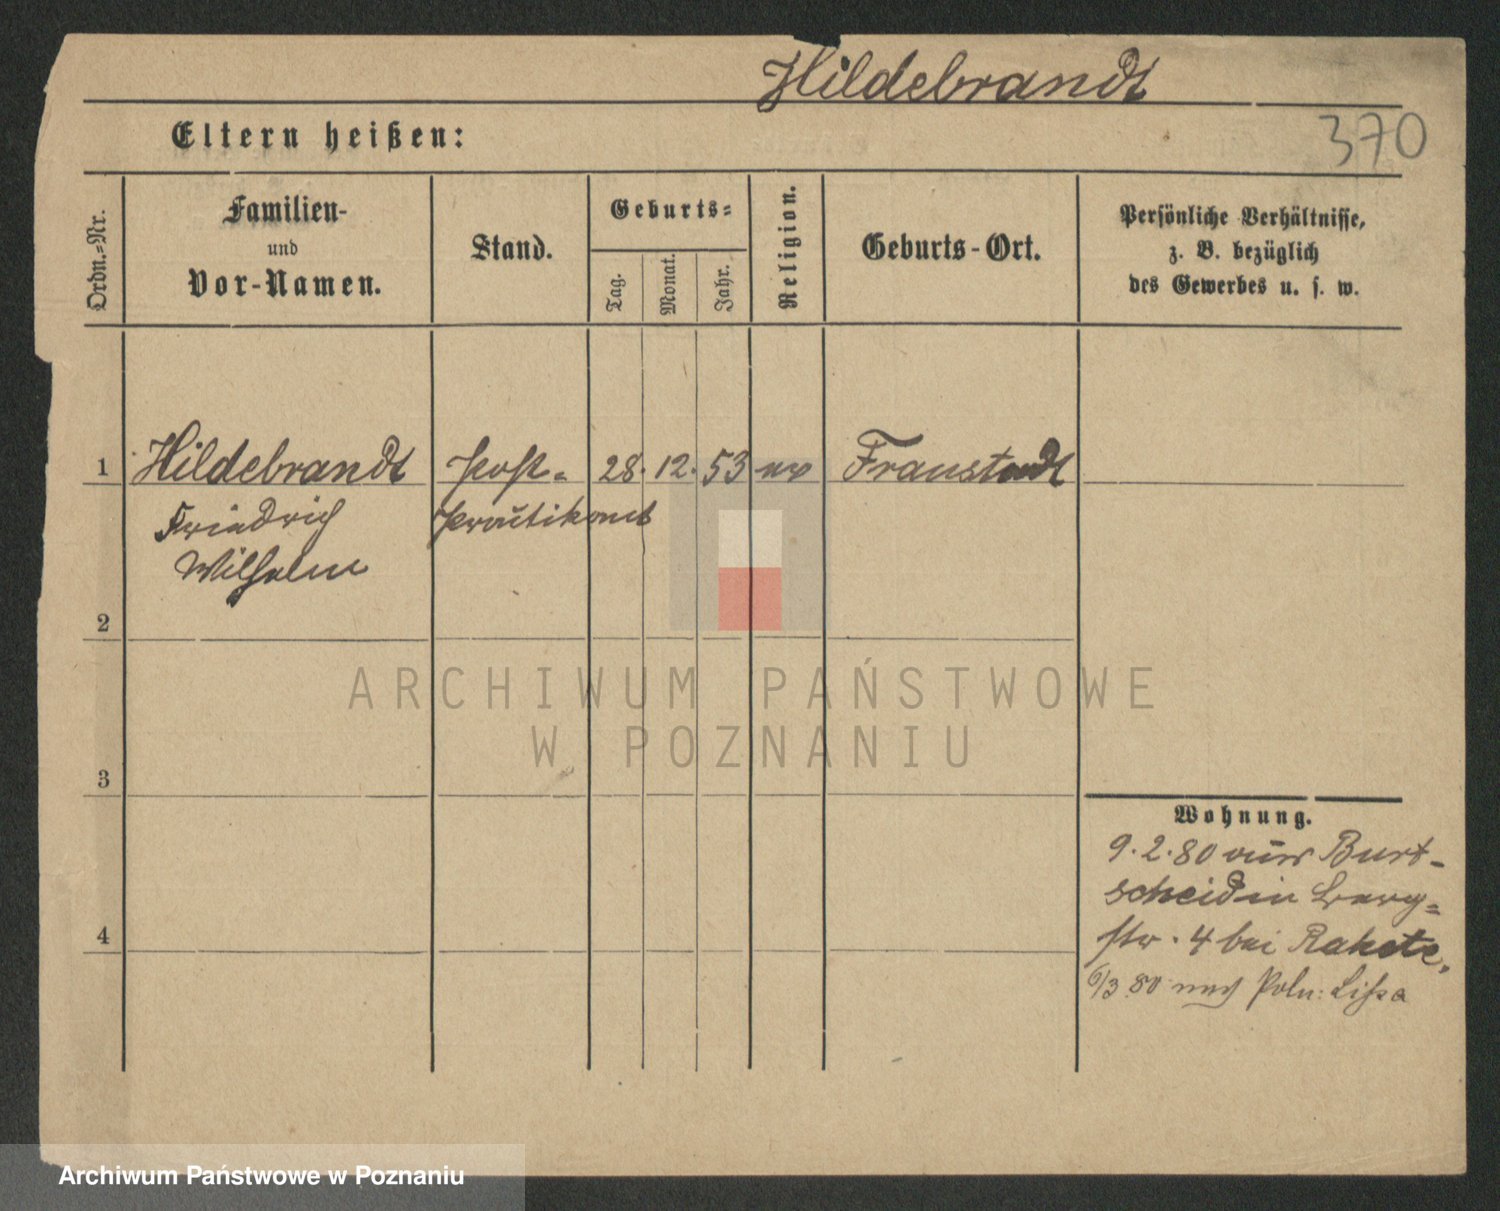 Hildebrandt
Eltern heißen:
370
Ordn.-Nr.
Familien-
und
Vor-Namen.
Stand.
Geburts-
Tag.
Monat.
Jahr.
Religion.
Geburts-Ort.
Persönliche Verhältnisse,
z. B. bezüglich
des Gewerbes u. s. w.
1 Hildebrandt Post- 28. 12. 53 ev Fraustadt
Friedrich Praktikant
Wilhelm
2
3
4
Wohnung.
9.2.80 aus Burt-
scheid in Berg-
str. 4 bei Rakete,
6/3 80 nach Poln: Lissa
ARCHIWUM PAŃSTWOWE
W POZNANIU
Archiwum Państwowe w Poznaniu